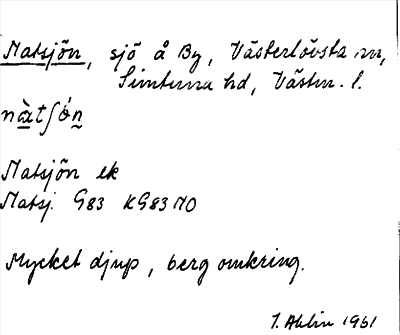 Matsjön, sjö å By, Västerlövsta sn,
Simtuna hd, Västm. l.
nàtʃön
Matsjön ek
Matsj. G83 KG83 NO
Mycket djup, berg omkring.
I. Ahlin 1961